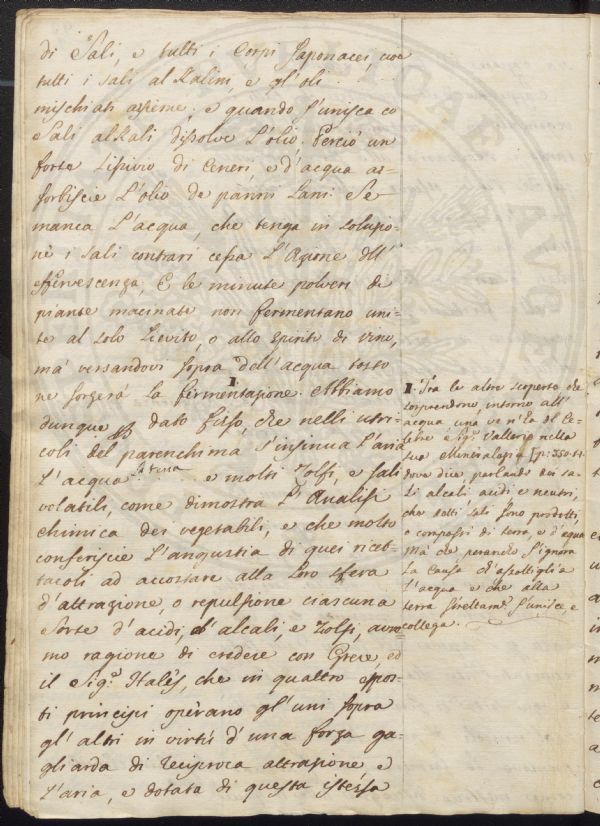 di Sali, e tutti i Corpi saponacei, cioè
tutti i sali alKalini, e gl'oli
mischiati assieme; e quando s'unisca co
Sali alKali dissolve l'olio. Perciò un
forte Lissivio di Ceneri, e d'acqua as-
sorbiscie l'olio de panni Lani. Se
manca l'acqua, che tenga in soluzio-
ne i sali contrari cessa l'Azione dell'
effervescenza, E le minute polveri di
piante macinate non fermentano uni-
te al solo Lievito, o allo spirito di vino,
mà versandovi sopra dell'acqua tosto
ne sorgerà la fermentazione. 1 Abbiamo
dunque dato fisso, che nelli utri-
coli del parenchima s'insinua l'aria
l'acqua la terra e molti Zolfi, e sali
volatili, come dimostra l'Analisi
chimica dei vegetabili, e che molto
conferiscie l'angustia di quei ricet-
tacoli ad accostare alla loro sfera
d'attrazione, o repulsione ciascuna
sorte d'acidi, d'alcali, e Zolfi, avre-
mo ragione di credere con Grew, ed
il Sig.r Hales, che in quattro espos-
ti principi operano gl'uni sopra
gl'altri in virtù d'una forza ga-
gliarda di reciproca attrazione e
l'aria, e dotata di questa istessa
1. Trà le altre scoperte che
sorprendono, intorno all'
acqua una ve n'è del Ce-
lebre Sig.r Vallerio nella
sua Mineralogia
dove dice, parlando dei sa-
li alcali acidi e neutri,
che detti sali sono prodotti,
e composti di terra, e d'acqua
mà che peranco s'ignora
la causa ch'assottiglia
l'acqua e che alla
terra strettam.e s'unisce, e
collega.